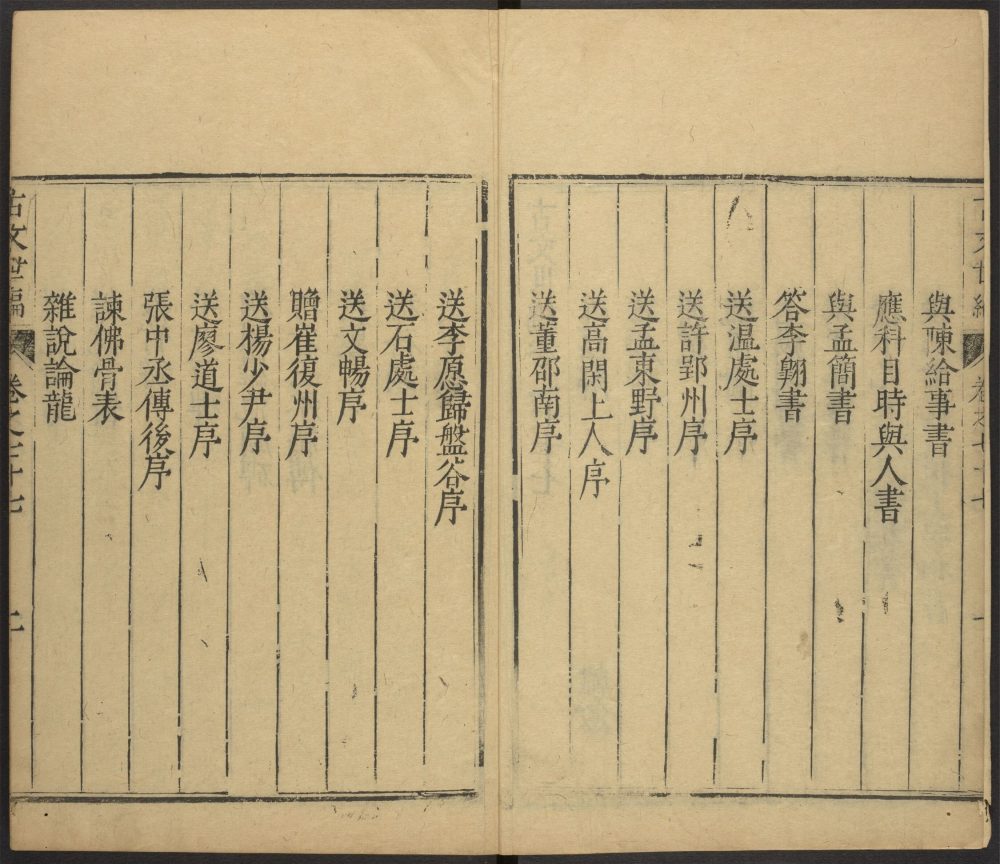 古文世編 卷之七十七 一
與陳給事書
應科目時與人書
與孟簡書
答李翱書
送溫處士序
送許郢州序
送孟東野序
送高閑上人序
送董邵南序
送李愿歸盤谷序
送石處士序
送文暢序
贈崔復州序
送楊少尹序
送廖道士序
張中丞傳後序
諫佛骨表
雜說論龍
古文世編 卷之七十七 二